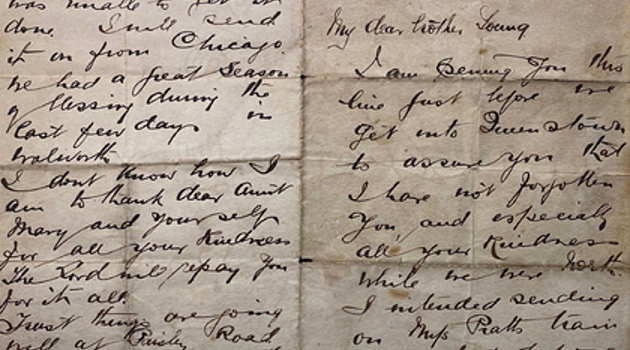 was unable to get it
done. I will send
it on from Chicago.
We had a great Season
of blessing during the
last few days in
Walworth
I dont know how I
am to thank dear Aunt
Mary and yourself
for all your kindness
The Lord will repay you
for it all.
Trust things are going
well at Paisley Road
My dear brother Young
I am sending you this
line just before we
get into Queenstown
to assure you that
I have not forgotten
you, and especially
all your kindness
while we were North.
I intended sending
on Miss Pratts train